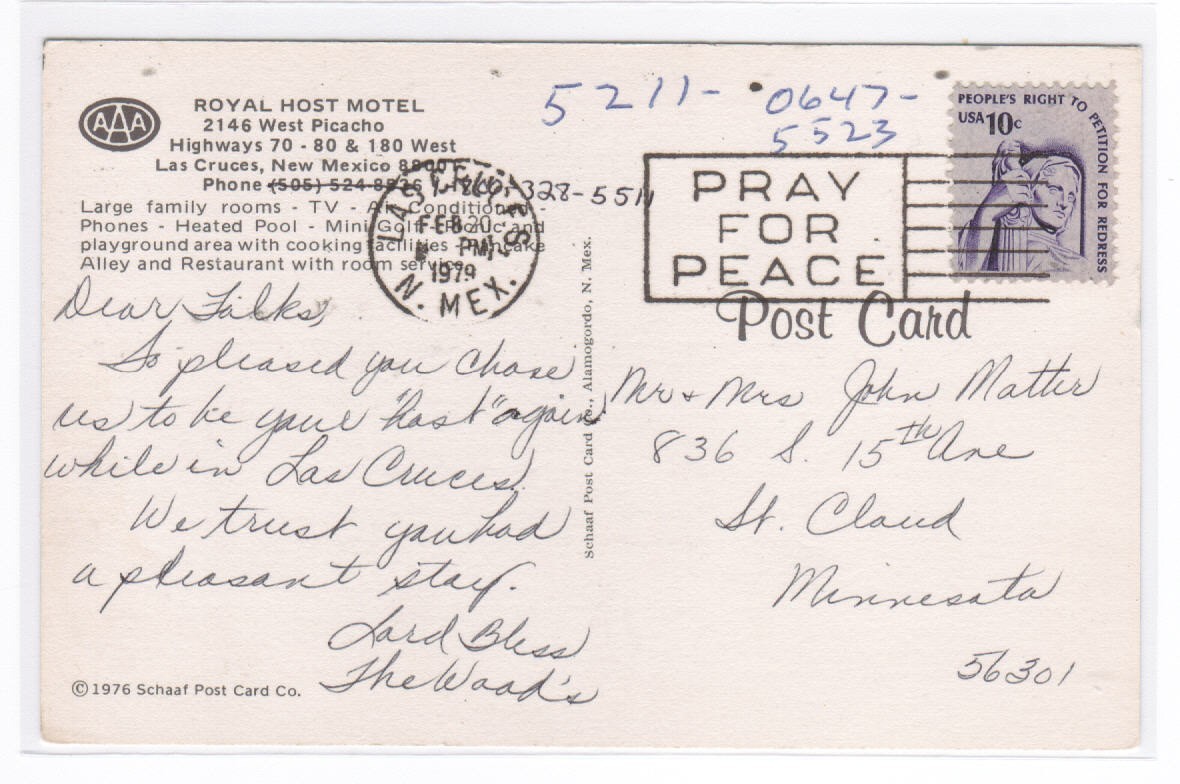 AAA
ROYAL HOST MOTEL
2146 West Picacho
Highways 70 - 80 & 180 West
Las Cruces, New Mexico 8800
Phone (505) 524-8536 328-5511
Large family rooms - TV - Air Conditioned -
Phones - Heated Pool - Mini Golf - Picnic and
playground area with cooking facilities - Pancake
Alley and Restaurant with room service.
Dear Folks,
So pleased you chose
us to be your "host" again
while in Las Cruces.
We trust you had
a pleasant stay.
Lord Bless
The Wood's
© 1976 Schaaf Post Card Co.
Schaaf Post Card Co., Alamogordo, N. Mex.
LAS CRUCES
FEB 20
PM
1979
N. MEX.
5211- 0647-
5523
PRAY
FOR
PEACE
PEOPLE'S RIGHT TO PETITION FOR REDRESS
USA 10c
Post Card
Mr & Mrs John Matter
836 S. 15th Ave
St. Cloud
Minnesota
56301